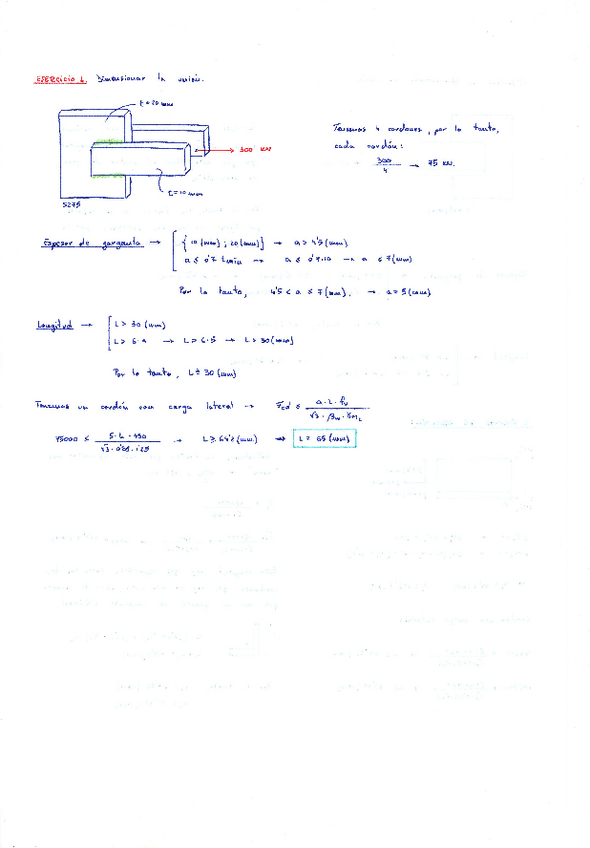 EJERCICIO 1. Dimensionar la unión.
t=20 mm
300 KN
t=10 mm
S275
Tenemos 4 cordones, por lo tanto,
cada cordón:
300/4 → 75 KN.
Espesor de garganta → {10 (mm) ; 20 (mm)} → a > 4'5 (mm)
a ≤ 0'7 tmin → a ≤ 0'7·10 → a ≤ 7 (mm)
Por lo tanto, 4'5 < a ≤ 7 (mm). → a = 5 (mm)
Longitud → L > 30 (mm)
L > 6·a → L > 6·5 → L > 30 (mm)
Por lo tanto, L ≥ 30 (mm)
Tenemos un cordón con carga lateral → Fed ≤ a·L·fu / √3·βw·γM2
75000 ≤ 5·L·430 / √3·0'85·1'25 → L ≥ 64'2 (mm) → L = 65 (mm)